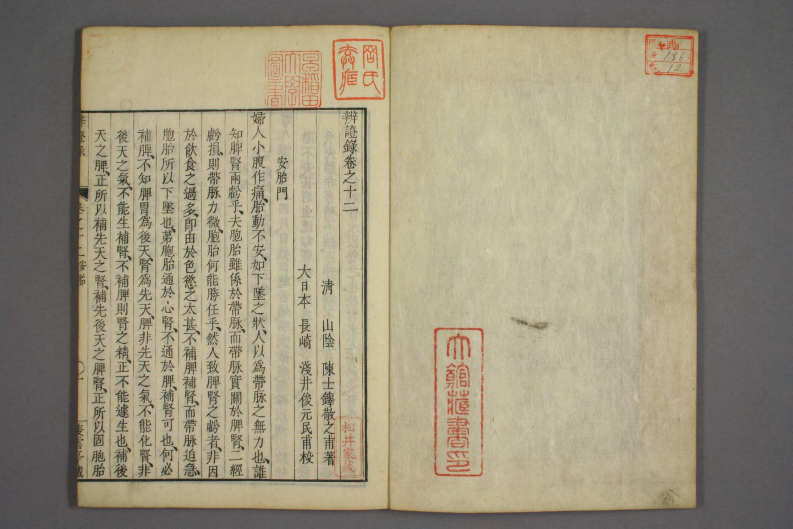 辨證錄卷之十二
清 山陰 陳士鐸敬之甫著
大日本 長崎 淺井俊元民甫校
安胎門
婦人小腹作痛、胎動不安、如下墜之狀、人以爲帶脉之無力也、誰
知脾腎兩虧乎、夫胞胎雖係於帶脉、而帶脉實關於脾腎、二經
虧損、則帶脉力微、胞胎何能勝任乎、然人致脾腎之虧者、非因
於飲食之過多、卽由於色慾之太甚、不補脾補腎、而帶脉迫急、
胞胎所以下墜也、第胞胎通於心腎、不通於脾、補腎可也、何必
補脾、不知脾胃爲後天、腎爲先天、脾非先天之氣、不能化、腎非
後天之氣、不能生、補腎、不補脾則腎之精、正不能遽生也、補後
天之脾、正所以補先天之腎、補先後天之脾腎、正所以固胞胎
松井家藏